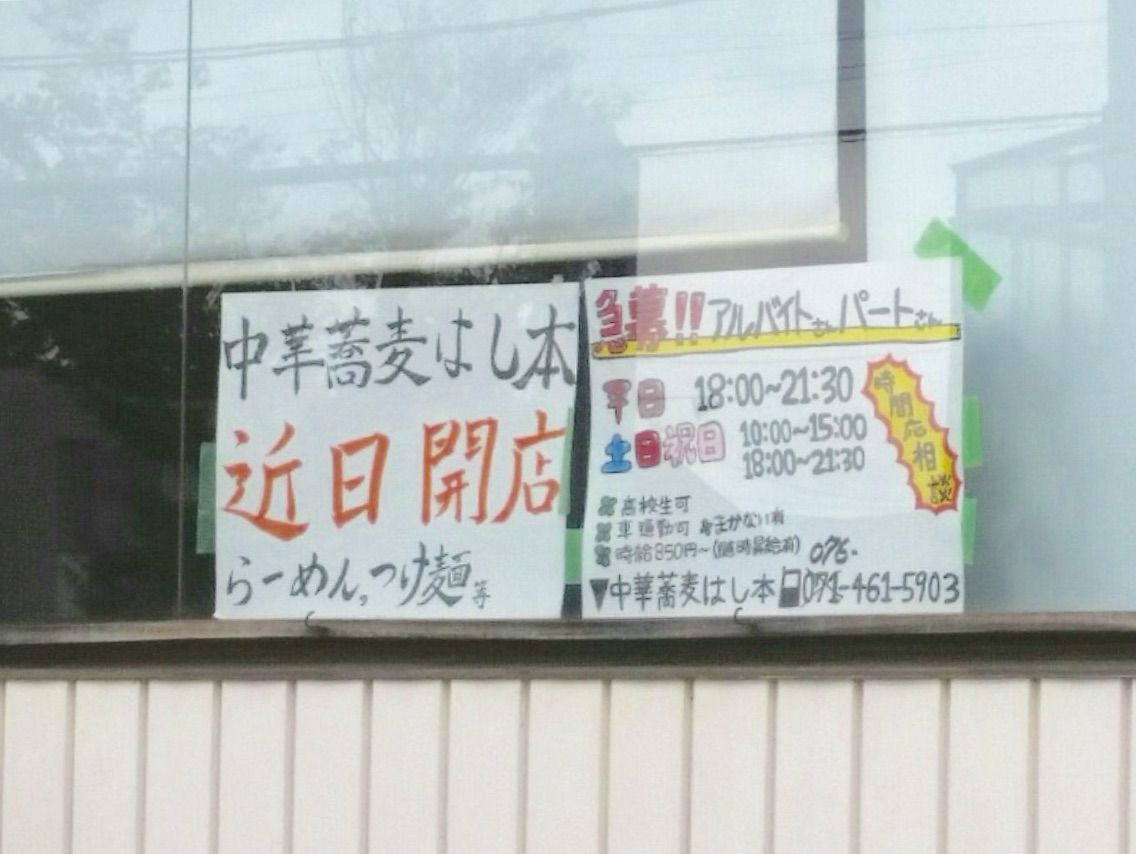 中華蕎麦はし本
近日開店
らーめん。つけ麺等
急募!!アルバイトさんパートさん
平日 18:00~21:30
土日祝日 10:00~15:00
18:00~21:30
時間応相談
高校生可
車通勤可 まかない有
時給850円~(随時昇給有) 076-
▼中華蕎麦はし本 071-461-5903